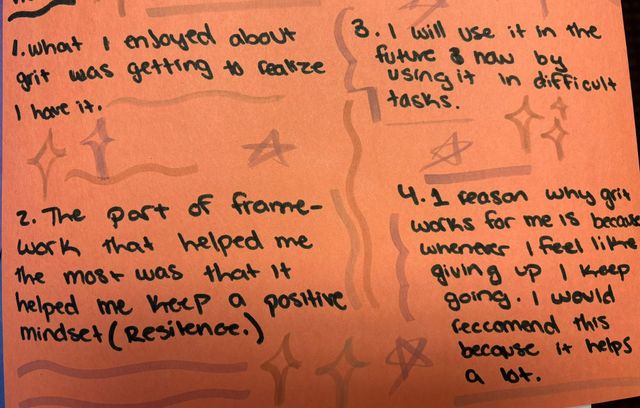 1. What I enjoyed about
grit was getting to realize
I have it.
2. The part of frame-
work that helped me
the most was that it
helped me keep a positive
mindset (Resilence.)
3. I will use it in the
future & now by
using it in difficult
tasks.
4. 1 reason why grit
works for me is because
whenever I feel like
giving up I keep
going. I would
reccomend this
because it helps
a lot.